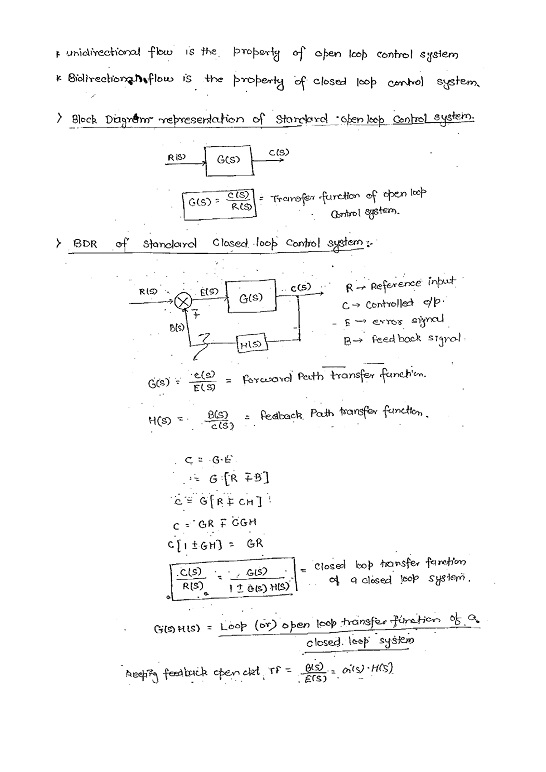 * unidirectional flow is the property of open loop control system
* Bidirectional flow is the property of closed loop control system.
> Block Diagram representation of Standard open loop Control system.
R(S) G(S) C(S)
G(S) = C(S)/R(S) = Transfer function of open loop
Control system.
> BDR of standard Closed loop Control system :-
R(S) E(S) G(S) C(S)
∓
B(S)
H(S)
R → Reference input
C → Controlled o/p.
E → error signal
B → feedback signal.
G(S) = C(S)/E(S) = Forward Path transfer function.
H(S) = B(S)/C(S) = feedback Path transfer function.
C = G·E
= G [R ∓ B]
C = G[R ∓ CH]
C = GR ∓ CGH
C[1 ± GH] = GR
C(S)/R(S) = G(S)/1 ± G(S) H(S) = Closed loop transfer function
of a closed loop system.
G(S) H(S) = Loop (or) open loop transfer function of a
closed loop system
keeping feedback open ckt, TF = B(S)/E(S) = G(S)·H(S)